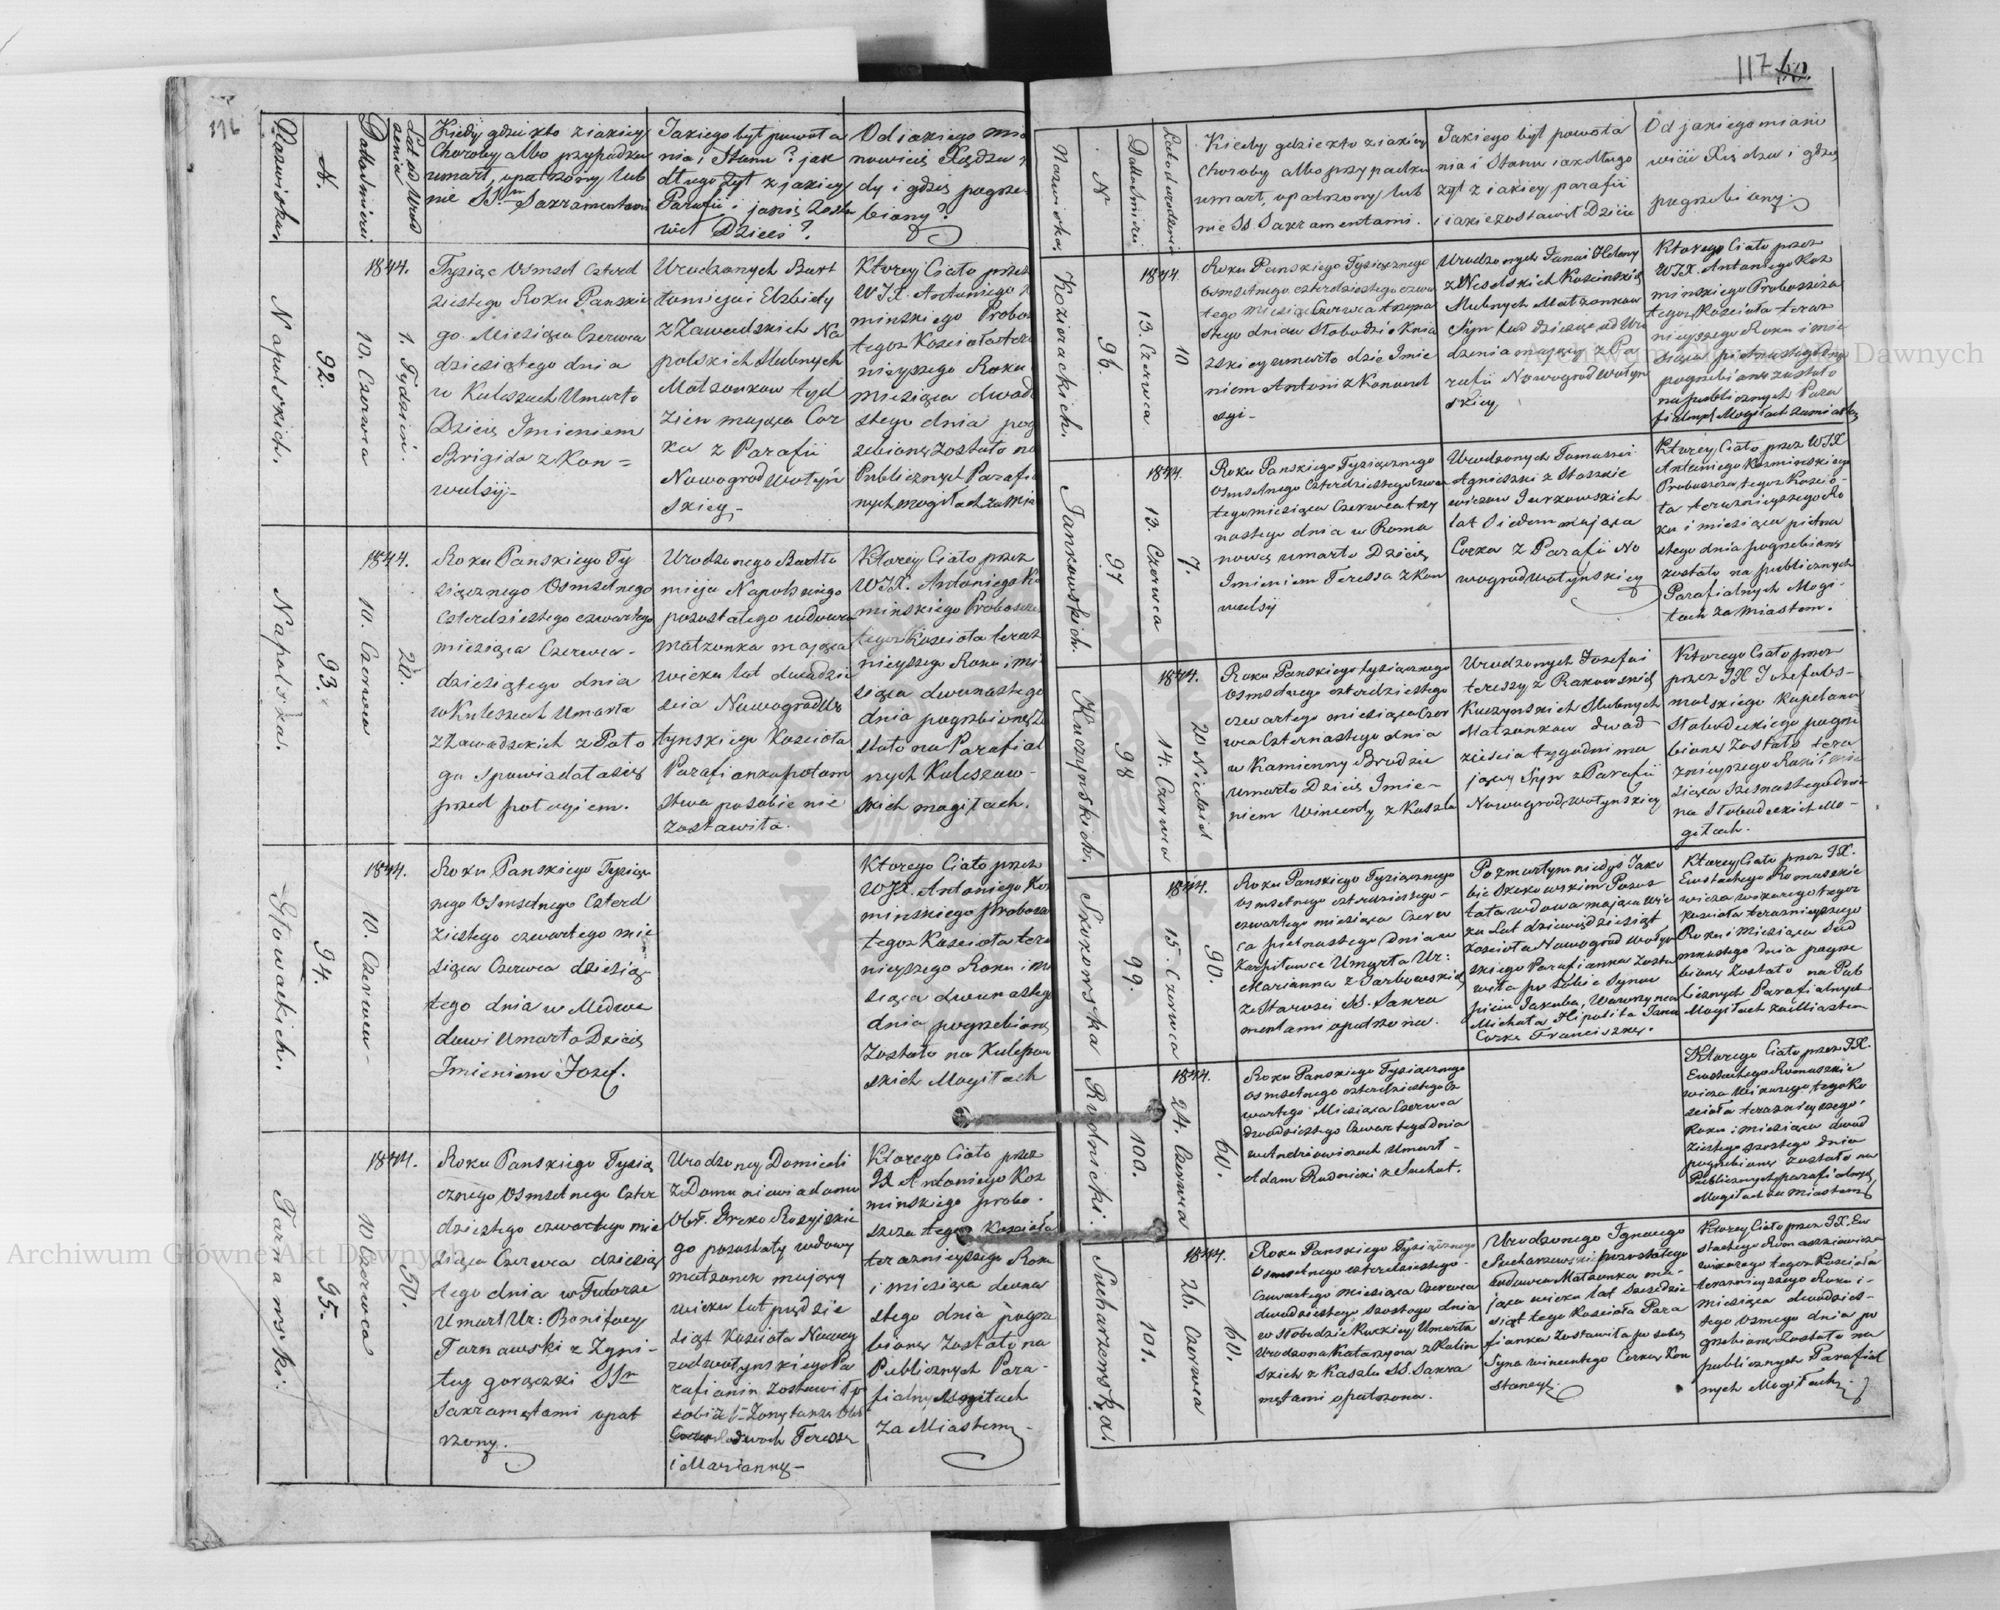 116
Nazwiska.
N.
Data śmierci
Lat od Uro
dzenia
Kiedy gdzie kto z iakiey
Choroby albo przypadku
umarł, opatrzony lub
nie SSm Sakramentami
Jakiego był powoła
nia i Stanu? jak
długo żył z jakiey
Parafii i jakie zosta
wił Dzieci?
Od jakiego mia
nowicie Xiędza i
dy i gdzie pogrze
biony?
Napolskich.
92.
1844.
10. Czerwca
1. Tydzień.
Tysiąc Osmset Czterd
ziestego Roku Panskie
go. Miesiąca Czerwca
dziesiątego dnia
w Kuleszach Umarło
Dziecię Imieniem
Brigida z Kon=
wulsij-
Urodzonych Bart
łomieja i Elżbiety
z Zawadzkich Na
polskich Slubnych
Małżonkow tyd
zien mająca Cor
ka z Parafii
Nowogrod Wołyń
skiey-
Ktorey Ciało przez
WJX. Antoniego
minskiego Probos
tegoż Kosciola tera
nieyszego Roku
miesiąca dwad
stego dnia pog
zebione zostało na
Publicznych Parafia
nych mogiłach za Mia
Napolska.
93.
1844.
10. Czerwca
20.
Roku Panskiego Ty
siącznego Osmsetnego
Czterdziestego czwartego
miesiąca Czerwca-
dziesiątego dnia
w Kuleszach Umarła
z Zawadzkich z Poło
gu spowiadałasię
przed połogiem.
Urodzonego Bartło
mieja Napolskiego
pozostałego wdowca
małżonka mająca
wieku lat dwadzie
scia Nowogrod Wo
łyńskiego Kościoła
Parafianka potom
stwa po sobie nie
zostawiła.
Ktorey Ciało przez
WJX. Antoniego Ko
minskiego Proboszcz
tegoż Kosciola teraz
nieyszego Roku i mi
siąca dwunastego
dnia pogrzbione zo
stało na Parafial
nych Kuleszow-
skich mogiłach.
Głowackich.
94.
1844.
10. Czerwca
Roku Panskiego Tysiącz
nego Osmsetnego Czterd
ziestego czwartego mie
siąca Czerwca dziesią
tego dnia w Medwe
dowi Umarło Dziecię
Imieniem Jozef.
Ktorego Ciało przez
WJX. Antoniego Koz
minskiego Probosz
tegoż Kosciola tera
nieyszego Roku i mi
siąca dwunastego
dnia pogrzebione
Zostało na Kuleszow
skich Mogiłach
Tarnawski.
95.
1844.
10 Czerwca
50.
Roku Panskiego Tysią
cznego Osmsetnego Czter
dziestego czwartego mie
siąca Czerwca dziesią
tego dnia w Fedorze
Umarł Ur: Bonifacy
Tarnawski z Zgni=
łey gorączki SSm
Sakramętami opat
rzony.
Urodzoney Domiceli
z Domu niewiadomo
Obr. Greko Rosyjskie
go pozostały wdowy
małżonek majacy
wieku lat pięćdzie
siąt Kosciola Nowog
rodwołynskiego Pa
rafianin zostawił p
sobie
Teressę
i Marianny-
Ktorego Ciało przez
JX Antoniego Koz
minskiego probo-
szcza tegoż Kosciola
teraznieyszego Roku
i miesiąca dwuna
stego dnia pogrze
bione Zostało na
Publicznych Para-
fialny Mogiłach
Za Miastem-
117
Nazwiska.
Nr
Data śmierci
Lat od urodzenia
Kiedy gdzie kto z iakiey
choroby albo przypadku
umarł, opatrzony lub
nie SS. Sakramentami.
Jakiego był powoła
nia i Stanu iak długo
żył z iakiey parafii
i iakie zostawił Dzieci
Od jakiego miano
wicie Xiędza i gdzie
pogrzebiony.
Koziorackich.
96.
1844.
13. Czerwca
10
Roku Panskiego Tysiącznego
Osmsetnego czterdziestego czwar
tego miesiąca Czerwca trzyna
stego dnia w Słobodzie Knia
zskiey umarło dziecie Imie
niem Antoni z Konwul
syi-
Urodzonych Jana i Heleny
z Weselskich Kosinskich
Slubnych Małżonkow
Syn lat dziesięc od Uro
dzenia majacy z Pa
rafii Nowogrod Wołyn
skiey
Ktorego Ciało przez
WJX. Antoniego Koz
minskiego Proboszcza
tegoż Kosciola teraz
nieyszego Roku i mie
siąca piętnastego dnia
pogrzebiono zostało
na publicznych Para
fialnych Mogiłach za miastem
Jankowskich.
97
1844.
13. Czerwca
7
Roku Panskiego Tysiącznego
Osmsetnego Czterdziestego czwar
tego miesiąca Czerwca trzy
nastego dnia w Roma
nowce umarło Dziecię
Imieniem Teressa z Kon
wulsij
Urodzonych Tomasza i
Agnieszki z Staszkie
wiczow Jurkowskich
lat Siedem mająca
Corka z Parafii No
wogrodwołynskiey
Ktorey Ciało przez WJX
Antoniego Kozminskiego
Proboszcza tegoż Koscio-
ła teraznieyszego Ro
ku i miesiąca piętna
stego dnia pogrzebione
zostało na publicznych
Parafialnych Mogi-
łach za Miastem.
Kuczynskich.
98
1844.
14. Czerwca
20 Niedziel
Roku Panskiego tysiącznego
Osmsetnego czterdziestego
czwartego miesiąca Czer
wca Czternastego dnia
w Kamienny Brodzie
umarło Dziecię Imie-
niem Wincenty z Kaszlu
Urodzonych Jozefa i
tereszy z Rakowskich
Kuczynskich Slubnych
Małżonkow dwad-
zieścia tygodni ma
jący Syn z Parafii
Nowogrodwołynskiey
Ktorego Ciało przez
przez JX Jozefa
malskiego Kapelana
Słobodeckiego pogrze
bione Zostało tera
znieyszego Roku i mie
siąca szesnastego dnia
na Słobodeckich Mo-
giłach.
Skokowska
99.
1844.
15. Czerwca
90.
Roku Panskiego Tysiącznego
Osmsetnego czterdziestego-
czwartego miesiąca Czerw
ca piętnastego dnia w
Karpiłowce Umarła Ur:
Marianna z Garbowskich
ze Starosci SS. Sakra
mentami opatrzona.
Po zmarłym niegdyś Jaku
bie Skokowskim Pozos
tała wdowa mająca wie
ku Lat dziewiędziesiąt
Kosciola Nowogrod Wołyn
skiego Parafianka Zosta
wiła po sobie Synow
pięciu Jakuba, Wawrzynca
Michała Hipolita Jana
Corkę Franciszkę.
Ktorey Ciało przez JX.
Eustachego Romaszkie
wicza wikarego tegoż
Kosciola teraznieyszego
Roku i Miesiąca Sied
mnastego dnia pogrze
bione zostało na Pub
licznych Parafialnych
Mogiłach za Miastem
Rudnicki.
100.
1844.
24. Czerwca
60.
Roku Panskiego Tysiącznego
Osmsetnego czterdziestego Cz
wartego Miesiąca Czerwca
dwudziestego Czwartego dnia
w Andriowiczach Umarł-
Adam Rudnicki z Suchot.
Ktorego Ciało przez JX.
Eustachego Romaszkie
wicza Wikarego tego Ko
sciola teraznieyszego
Roku i miesiąca dwad
ziestego szostego dnia
pogrzebione zostało na
Publicznych parafialnych
Mogiłach za miastem
Sucharzewska.
101.
1844.
26. Czerwca
60.
Roku Panskiego Tysiącznego
Osmsetnego czterdziestego-
Czwartego miesiąca Czerwca
dwudziestego szostego dnia
w Słobodzie Ruckiey Umarła
Urodzona Katarzyna z Kalin
skich z Kaszlu SS. Sakra
mętami opatrzona.
Urodzonego Ignacego
Sucharzewski pozostałego
wdowca Małżonka ma-
jąca wieku lat szescdzie
siąt tego Kosciola Para
fianka Zostawiła po sobie
Syna wincentego Corkę Kon
stancyę.
Ktorey Ciało przez JX. Eu
stachego Romaszkiewicza
wikarego tegoż Kosciola
teraznieyszego Roku i-
miesiąca dwudzies-
tego osmego dnia po
grzebione Zostało na
publicznych Parafial
nych Mogiłach.
Archiwum Główne Akt Dawnych
Archiwum Główne Akt Dawnych